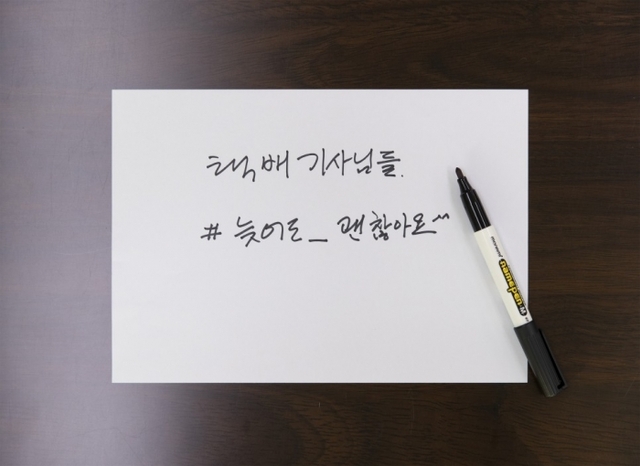 택배 기사님들.
# 늦어도_ 괜찮아요^^
namepen